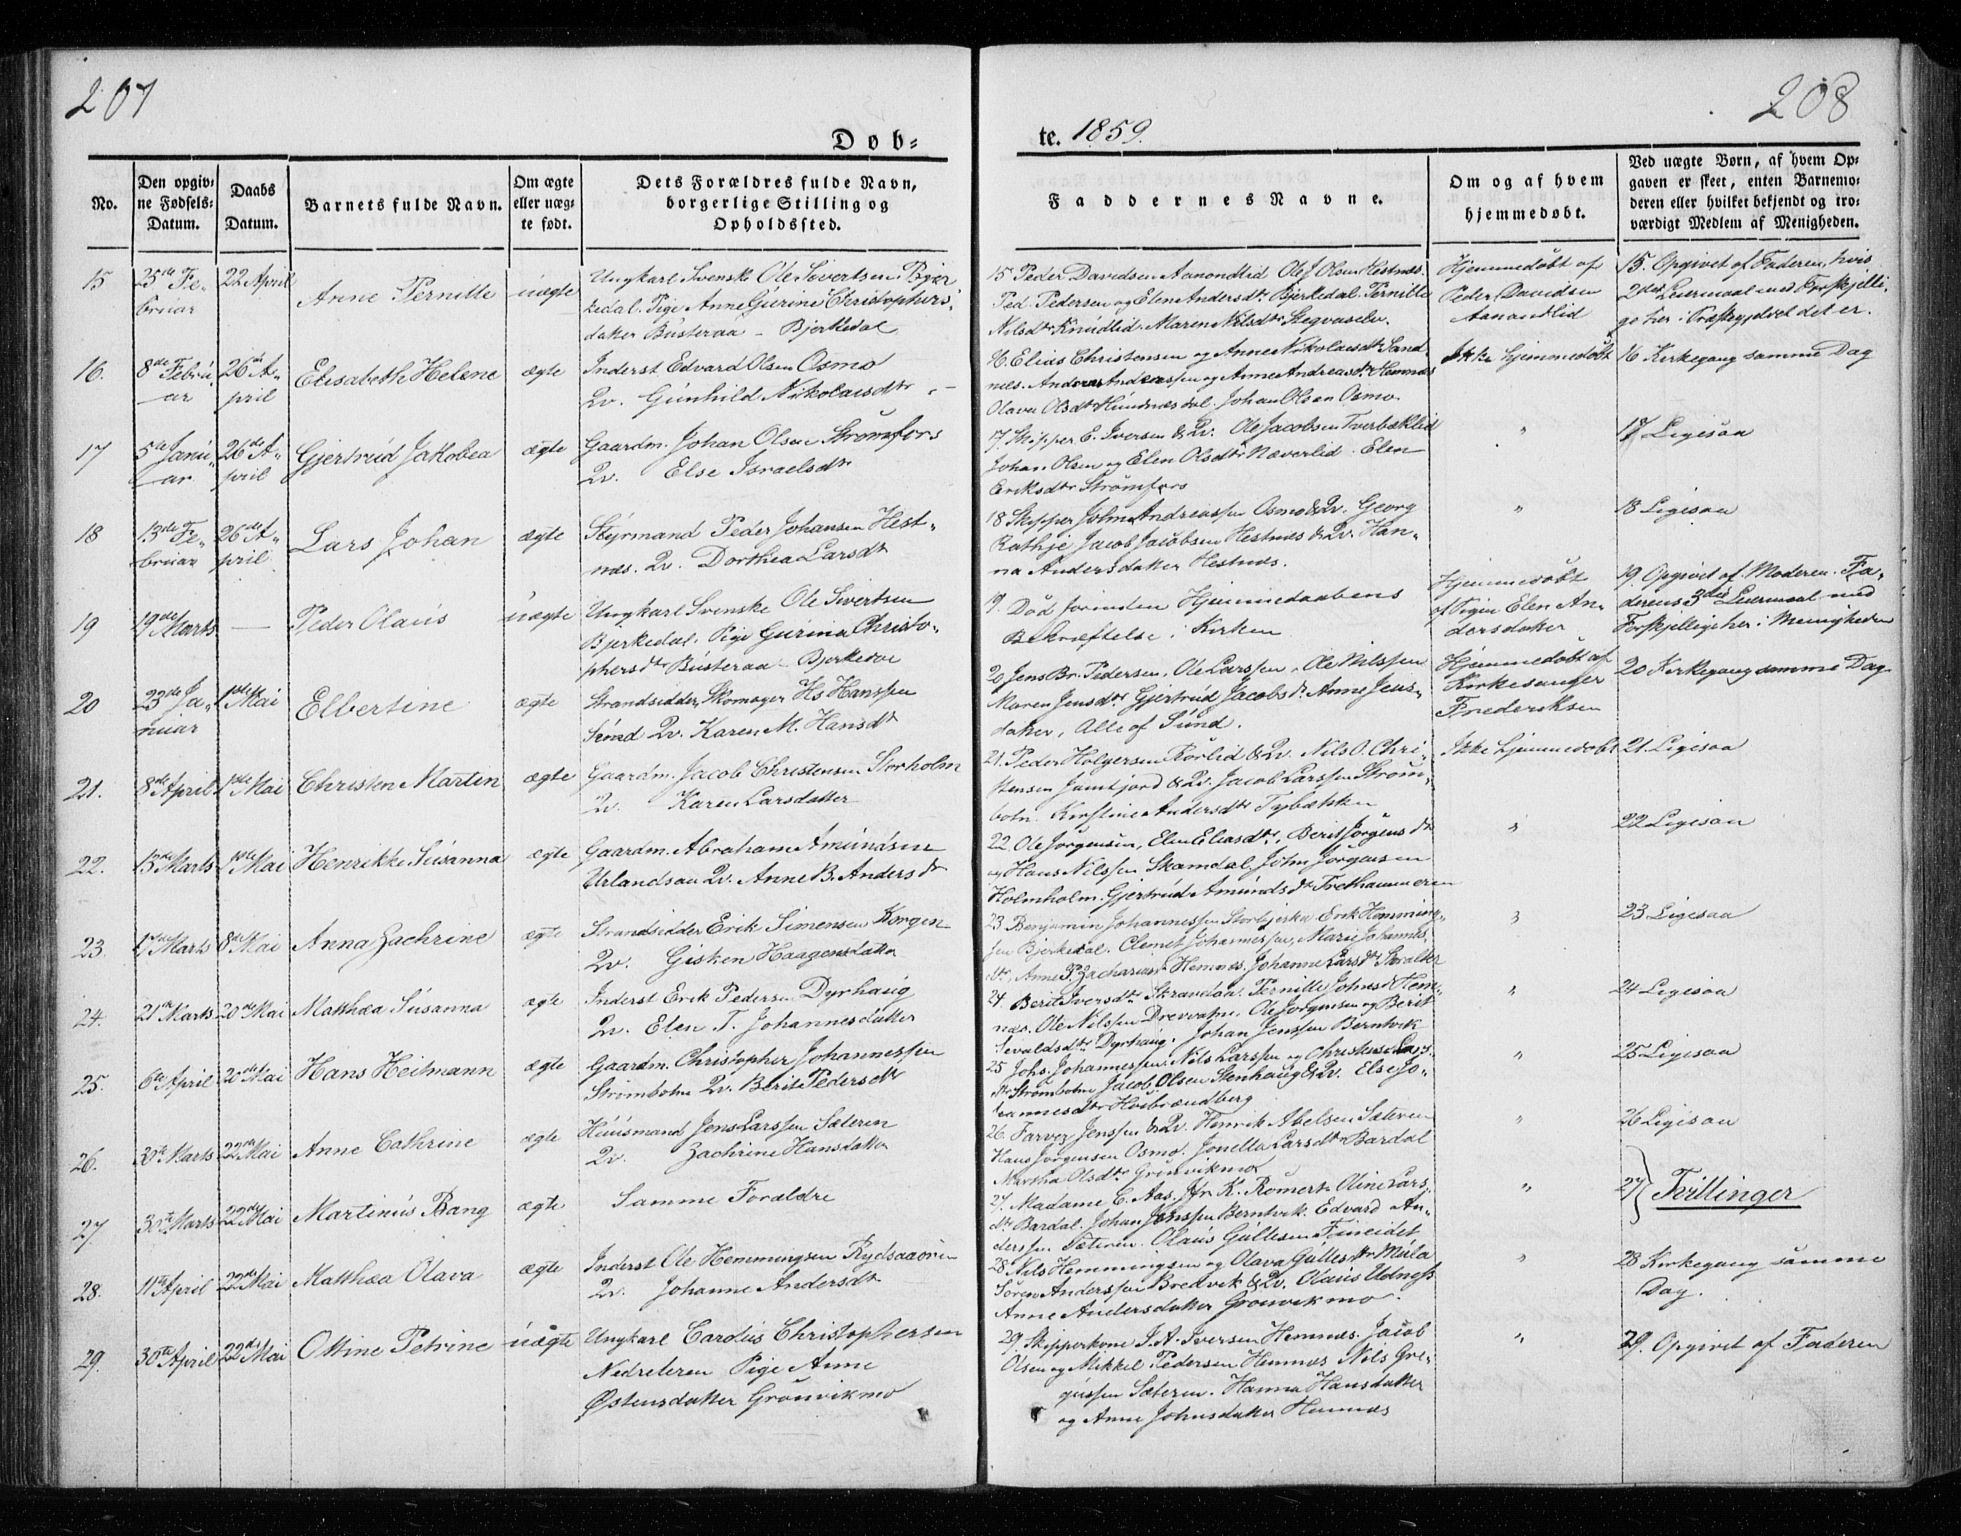 207
208
Døb-
te. 1859.
No.
Den opgiv-
ne Fødsels-
Datum.
Daabs
Datum.
Barnets fulde Navn.
Om ægte
eller uæg-
te født.
Dets Forældres fulde Navn,
borgerlige Stilling og
Opholdssted.
Faddernes Navne.
Om og af hvem
hjemmedøbt.
Ved uægte Børn, af hvem Op-
gaven er skeet, enten Barnemo-
deren eller hvilket bekjendt og tro-
værdigt Medlem af Menigheden.
15
25de Fe-
bruar
22 April
Anne Pernille
uægte
Ungkarl Svenske Ole Sivertsen Bjer
kedal. Pige Anne Gurine Christophers-
datter Busteraa - Bjerkedal
15 Peder Davidsen Aanondlid Ole J Olsen Hestnes.
Ped. Pedersen og Elen Andersdtr Bjerkedal. Pernille
Nilsdtr Knudlid. Maren Nilsdtr
Hjemmedøbt af
Peder Davidsen
Aanondlid
15. Opgivet af Faderen, hvis
2det Leiermaal med Forskjelli-
ge her i Præstegjeldet det er.
16.
8de Febru-
ar
26 A-
pril
Elisabeth Helene
ægte
Inderst Edvard Olsen Osmo
Qv. Gunhild Nikolaisdtr
16 Elias Christensen og Anne Nikolaisdtr Sand
nes. Anders Andreassen og Anne Andreasdtr Hemnes
Olava Olsdtr Hundnesdal. Johan Olsen Osmo.
Ikke hjemmedøbt
16 Kirkegang samme Dag
17
5te Janu-
ar
26de A-
pril
Gjertrud Jakobea
ægte
Gaardm. Johan Olsen Strømfors
Qv. Else Israelsdtr
17 Skipper E. Iversen & Qv. Ole Jacobsen Tverbæklid
Johan Olsen og Elen Olsdtr Næverlid. Elen
Eriksdtr Strømfors
"
17 Ligesaa
18
13de Fe-
bruar
26de A-
pril
Lars Johan
ægte
Styrmand Peder Johansen Hest-
næs. Qv. Dorthea Larsdtr
18 Skipper John Andreassen Osmo & Qv. Georg
Rathje Jacob Jacobsen Hestnæs & Qv. Han-
na Andersdatter Hestnæs.
"
18 Ligesaa
19
19de Marts
—
Peder Olaus
uægte
Ungkarl Svenske Ole Sivertsen
Bjerkedal. Pige Gurina Christo-
phersdtr Busteraa - Bjerkedal
19. Død forinden Hjemmedaabens
Bekræftelse i Kirken
Hjemmedøbt
af Pigen Elen An-
dersdatter
19. Opgivet af Moderen. Fa-
derens 3die Leiermaal med
Forskjellige her i Menigheden
20
23de Ja-
nuar
1ste Mai
Elbertine
ægte
Strandsidder, Skomager Hs Hanssen
Sund Qv. Karen M. Hansdtr
20 Jens Br. Pedersen, Ole Larssen, Ole Nilssen
Maren Jensdtr Gjertrud Jacobsdtr. Anne Jens-
datter, Alle af Sund.
Hjemmedøbt af
Kirkesanger
Frederiksen
20 Kirkegang samme Dag
21.
8de April
1ste Mai
Christen Martin
ægte
Gaardm. Jacob Christensen Storholm
Qv. Karen Larsdatter
21. Peder Holgersen Rørlid & Qv. Nils O. Chri-
stensen Jamtjord & Qv. Jacob Larssen Strøm-
botn. Kirstine Andersdtr
Ikke hjemmedøbt
21. Ligesaa
22.
15de Marts
1ste Mai
Henrikke Susanna
ægte
Gaardm. Abraham Amundsen
Urlandsaa Qv. Anne B. Andersdtr
22 Ole Jørgensen, Elen Eliasdtr, Berit Jørgensdtr
og Hans Nilssen Skamdal, John Jørgensen
Holmholm. Gjertrud Amundsdtr
"
22 Ligesaa
23.
Marts
8de Mai
Anna Zachrine
ægte
Strandsidder Erik Simensen Korgen
Qv. Gisken Haagensdatter
23 Benjamin Johannessen Storbjerka Erik Hemming-
sen Bjerkedal. Clemet Johannessen, Marie Johannes-
dtr, Anne P. Zachariasdtr Hemnes. Johanne Larsdtr
"
23 Ligesaa
24.
21de Marts
20de Mai
Matthæa Susanna
ægte
Inderst Erik Pedersen Dyrhaug
Qv. Elen T. Johannesdatter
24. Berit Iversdtr Pernille Johnsdtr Hem-
næs. Ole Nilssen Drevvatne. Ole Jørgensen og Berit
Sevaldsdtr Dyrhaug. Johan Jenssen Berntvik
"
24 Ligesaa
25.
6te April
20de Mai
Hans Heitmann
ægte
Gaardm. Christopher Johannessen
Strømbotn Qv. Berit Pedersdtr
25 Johs. Johannessen, Nils Larssen og Christense Lars-
dtr Strømbotn Jacob Olsen Stenhaug & Qv. Else Jo-
hannesdtr
"
25 Ligesaa
26.
30te Marts
22de Mai
Anne Cathrine
ægte
Huusmand Jens Larssen Sæteren
Qv. Zachrine Hansdatter
26. Farver Jenssen & Qv. Henrik Abelsen Sæteren
Hans Jørgensen Osmo. Jonella Larsdtr Bardal
Martha Olsdtr Grønvikmo
"
26 Ligesaa
27.
30te Marts
22de Mai
Martinus Bang
ægte
Samme Forældre
27. Madame C. Aas. Jfr K. Rømert. Oline Lars-
dtr Bardal. Johan Jenssen Berntvik. Edvard An-
derssen Sæteren. Olaus Gullesen Fineidet
"
27 } Tvillinger
28.
11te April
22de Mai
Matthæa Olava
ægte
Inderst Ole Hemmingsen Rydsaaøren
Qv. Johanne Andersdtr
28. Nils Hemmingsen og Olava Gullesdtr Mula
Søren Anderssen Bredvik & Qv. Olaus Utness
Anne Andersdatter Grønvikmo.
"
28 Kirkegang samme
Dag.
29.
30te April
22de Mai
Ottine Petrine
uægte
Ungkarl Carolus Christophersen
Nedreleren Pige Anne
Østensdatter Grønvikmo
29. Skipperkone J. A. Iversen Hemnæs. Jacob
Olsen og Mikkel Pedersen Hemnæs Nils Gre-
gussen Sæteren. Hanna Hansdatter
og Anne Johnsdatter Hemnæs
"
29. Opgivet af Faderen